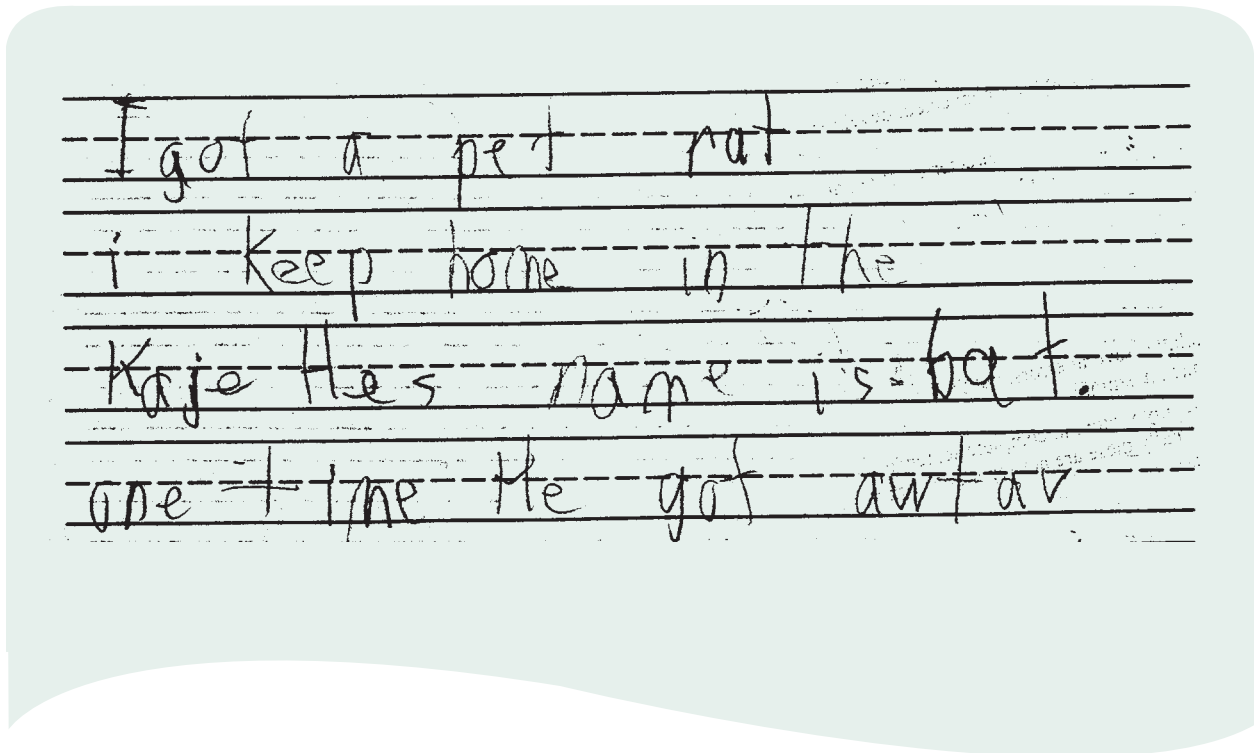 I got a pet rat
i keep home in the
Kaje Hes name is bat.
one time He got awtav